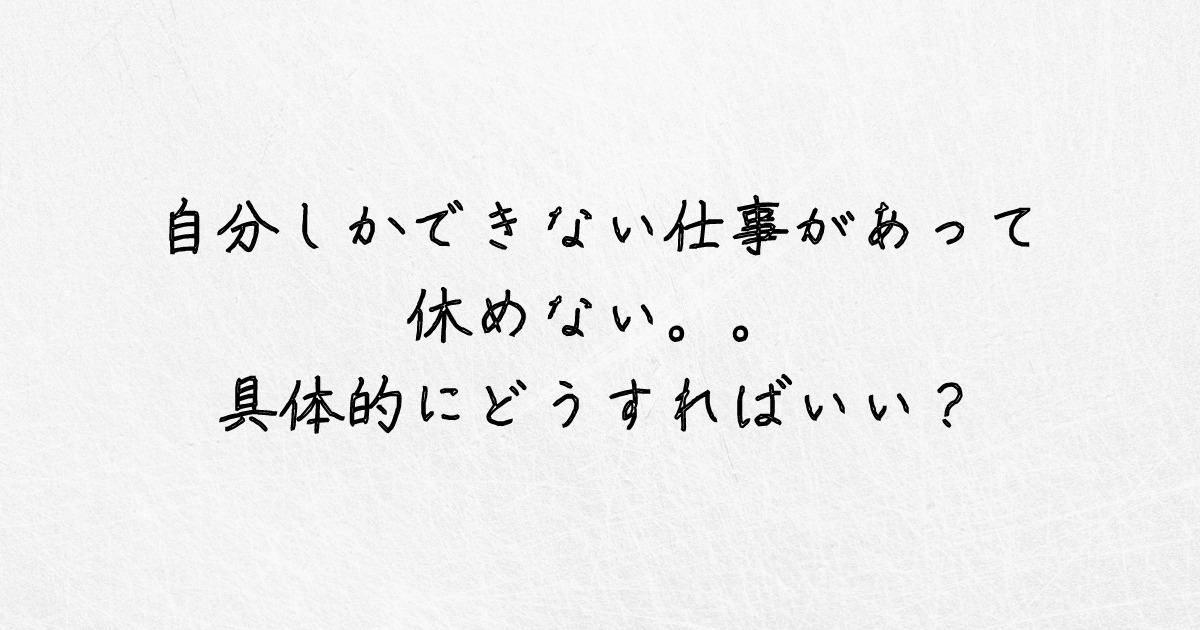 自分しかできない仕事があって
休めない。。
具体的にどうすればいい？